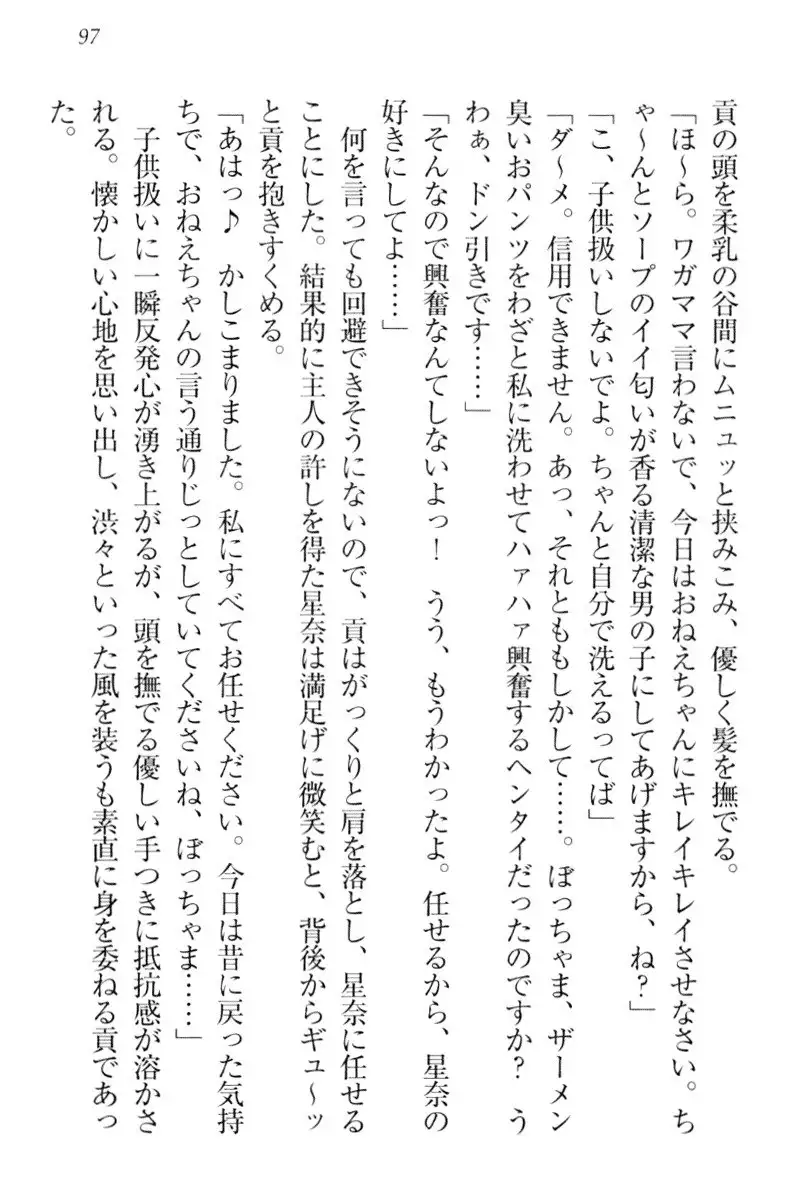 97
貢の頭を柔乳の谷間にムニュッと挟みこみ、優しく髪を撫でる。
「ほ～ら。ワガママ言わないで、今日はおねえちゃんにキレイキレイさせなさい。ち
ゃ～んとソープのイイ匂いが香る清潔な男の子にしてあげますから、ね？」
「こ、子供扱いしないでよ。ちゃんと自分で洗えるってば」
「ダ～メ。信用できません。あっ、それとももしかして……。ぼっちゃま、ザーメン
臭いおパンツをわざと私に洗わせてハァハァ興奮するヘンタイだったのですか？　う
わぁ、ドン引きです……」
「そんなので興奮なんてしないよっ！　うう、もうわかったよ。任せるから、星奈の
好きにしてよ……」
何を言っても回避できそうにないので、貢はがっくりと肩を落とし、星奈に任せる
ことにした。結果的に主人の許しを得た星奈は満足げに微笑むと、背後からギュ～ッ
と貢を抱きすくめる。
「あはっ♪　かしこまりました。私にすべてお任せください。今日は昔に戻った気持
ちで、おねえちゃんの言う通りじっとしていてくださいね、ぼっちゃま……」
子供扱いに一瞬反発心が湧き上がるが、頭を撫でる優しい手つきに抵抗感が溶かさ
れる。懐かしい心地を思い出し、渋々といった風を装うも素直に身を委ねる貢であっ
た。